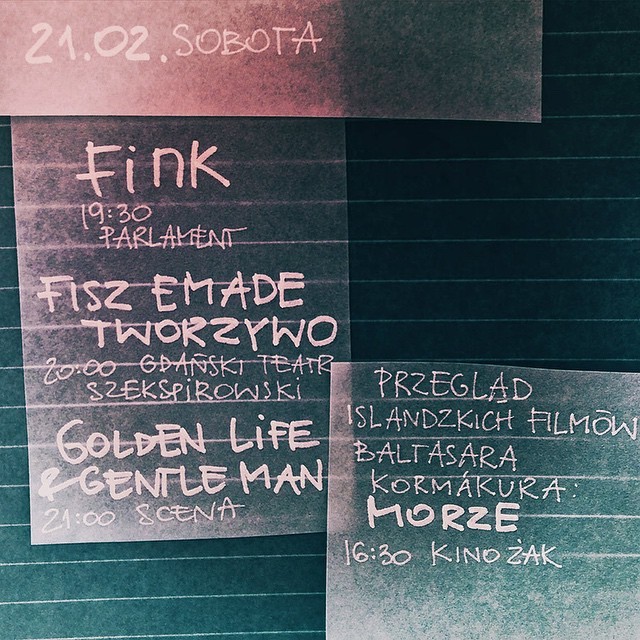 21.02. SOBOTA
FiNK
19:30
PARLAMENT
FISZ EMADE
TWORZYWO
20:00 GDAŃSKI TEATR
SZEKSPIROWSKI
GOLDEN LiFE
& GENTLEMAN
21:00 SCENA
PRZEGLĄD
ISLANDZKICH FILMÓW
BALTASARA
KORMÁKURA:
MORZE
16:30 KINO ŻAK